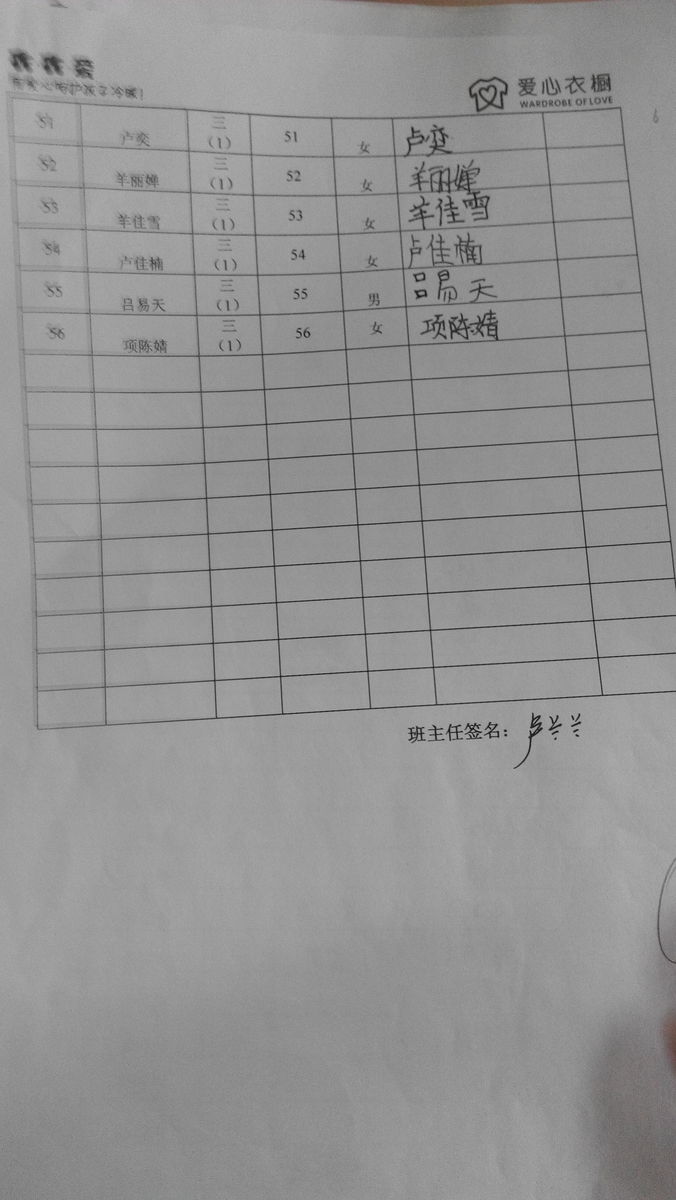 爱心衣橱
WARDROBE OF LOVE
51 卢奕 三(1) 51 女 卢奕
52 羊丽婵 三(1) 52 女 羊丽婵
53 羊佳雪 三(1) 53 女 羊佳雪
54 卢佳楠 三(1) 54 女 卢佳楠
55 吕易天 三(1) 55 男 吕易天
56 项陈婧 三(1) 56 女 项陈婧
班主任签名：卢兰兰